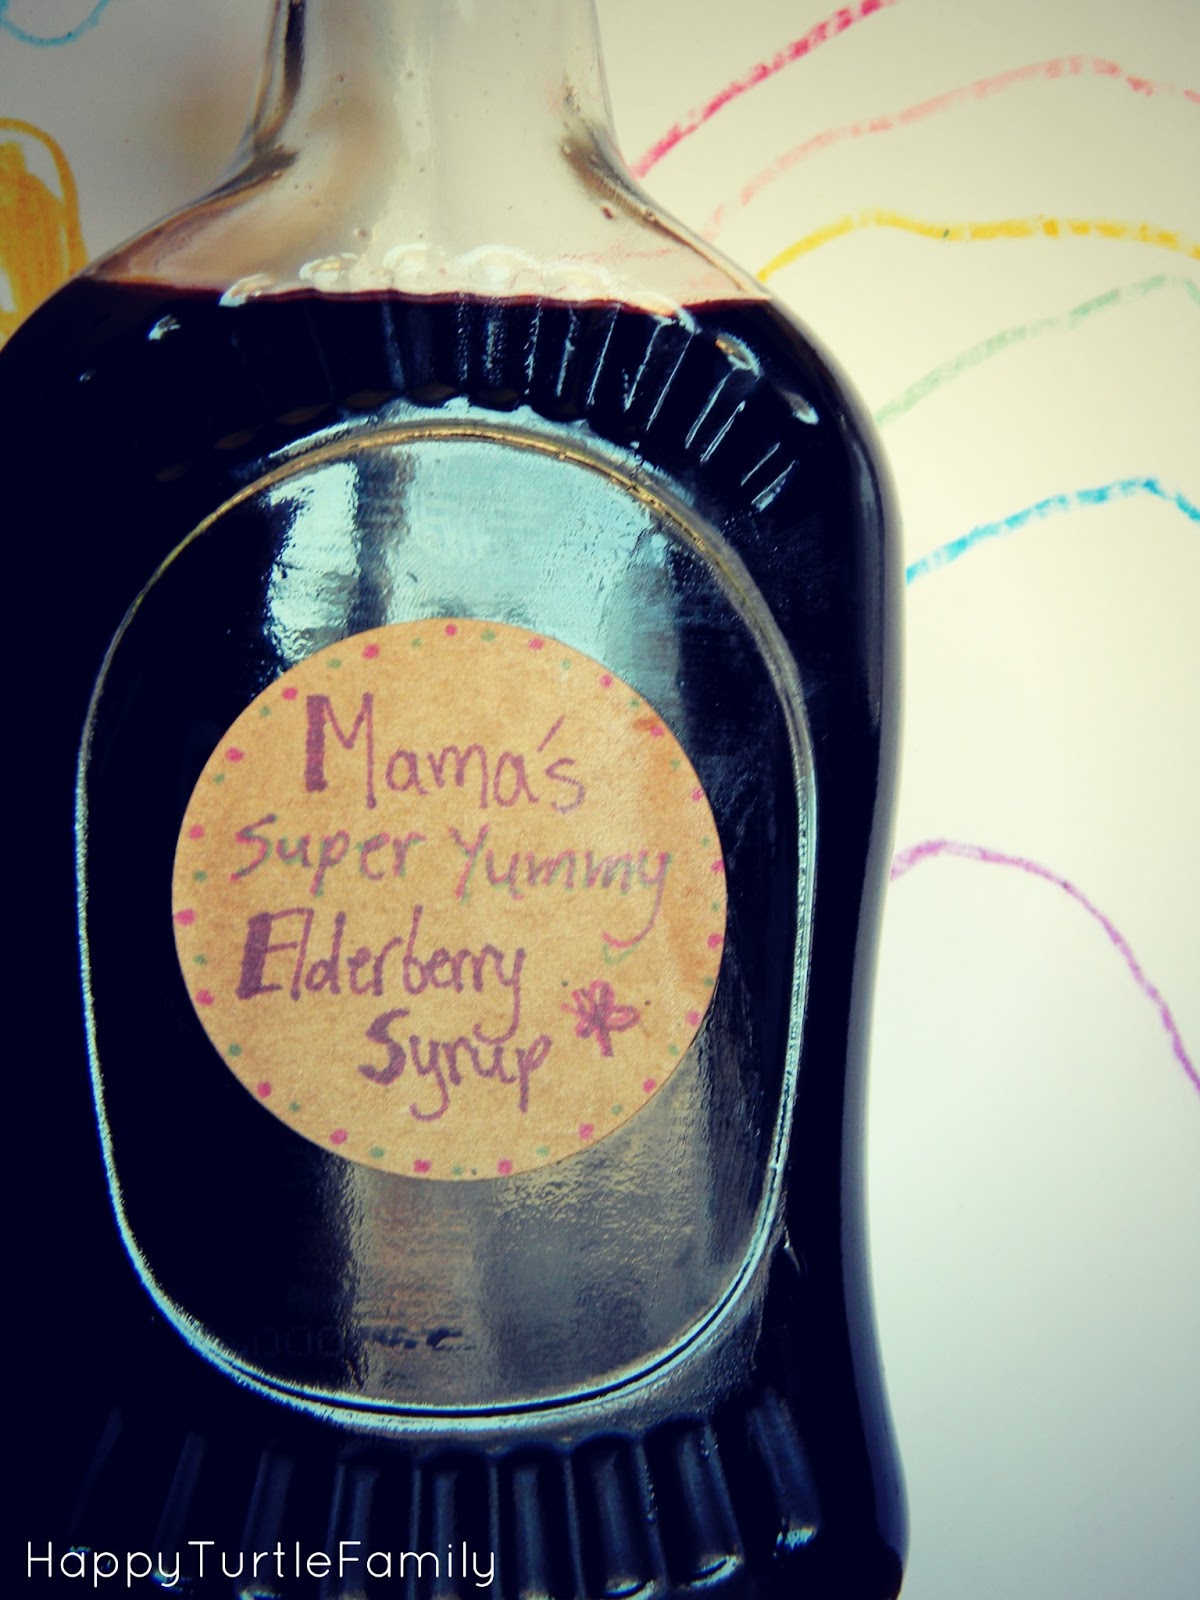 Mama's
Super Yummy
Elderberry
Syrup
HappyTurtleFamily